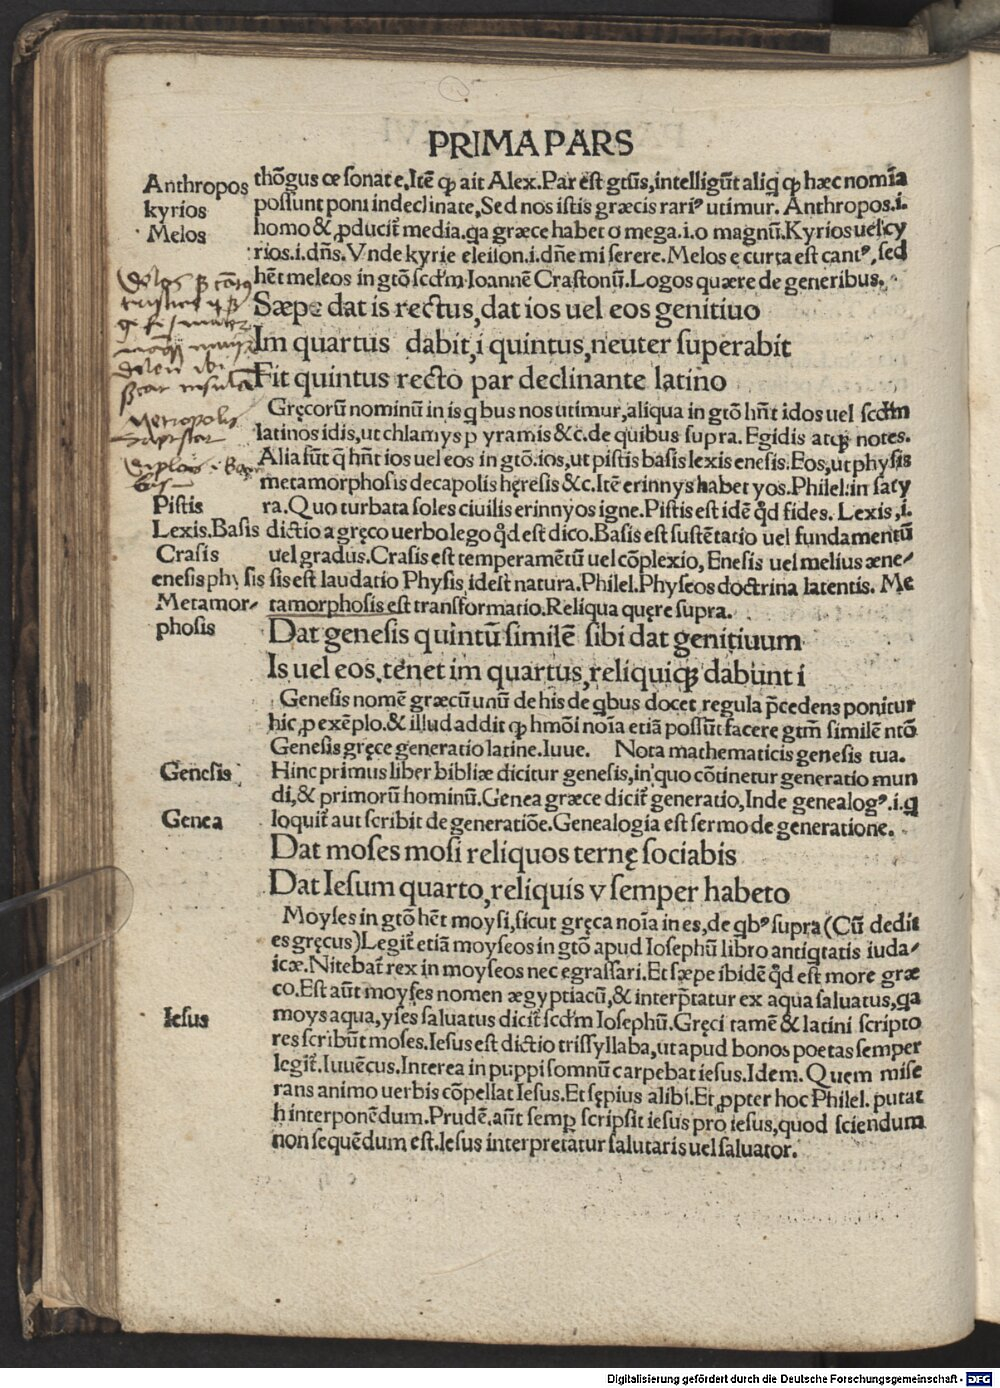 PRIMA PARS
Anthropos thõgus œ sonate, Itē ꝙ ait Alex. Par est gtūs, intelligūt aliq̈ ꝙ hæc nomīa
kyrios possunt poni indeclinate, Sed nos istis græcis rariꝰ utimur. Anthropos .i.
Melos homo &, ꝓducit̄ media. qa græce habet o mega .i. o magnū. Kyrios uel cy
rios .i. dñs. Vnde kyrie eleison .i. dñe miserere. Melos e curta est cantꝰ, sed
hēt meleos in gtõ scd'm Ioannē Crastonū. Logos quære de generibus.
Sæpe dat is rectus, dat ios uel eos genitiuo
Im quartus dabit, i quintus, neuter superabit
Fit quintus recto par declinante latino
Gręcorū nominū in is q̈bus nos utimur, aliqua in gtõ hñt idos uel scd'm
latinos idis, ut chlamys pyramis &c. de quibus supra. Egidis atqꝫ notes.
Alia sūt q̄ hñt ios uel eos in gtõ. ios, ut pistis basis lexis enesis. Eos, ut physis
metamorphosis decapolis hęresis &c. Itē erinnys habet yos. Philel. in saty
Pistis ra. Quo turbata soles ciuilis erinnyos igne. Pistis est idē qd̄ fides. Lexis, .i.
Lexis. Basis dictio a gręco uerbo lego qd̄ est dico. Basis est sustētatio uel fundamentū
Crasis uel gradus. Crasis est temperamētū uel cõplexio, Enesis uel melius æne-
enesis physis sis est laudatio Physis, idest natura. Philel. Physeos doctrina latentis. Me
Metamor- tamorphosis est transformatio. Reliqua quęre supra.
phosis Dat genesis quintū similē sibi dat genitiuum
Is uel eos, tenet im quartus, reliquiqꝫ dabunt i
Genesis nomē græcū unū de his de q̈bus docet regula p̄cedens ponitur
hic, ꝓ exēplo. & illud addit ꝙ hmõi noīa etiā possūt facere gtm̄ similē ntõ
Genesis gręce generatio latine. Iuue. Nota mathematicis genesis tua.
Genesis Hinc primus liber bibliæ dicitur genesis, in quo cõtinetur generatio mun
di, & primorū hominū. Genea græce dicit̄ generatio, Inde genealogꝰ .i. q̈
Genea loquit̄ aut scribit de generatiõe. Genealogia est sermo de generatione.
Dat moses mosi reliquos ternę sociabis
Dat Iesum quarto, reliquis v semper habeto
Moyses in gtõ hēt moysi, sicut gręca noīa in es, de q̈bꝰ supra (Cū dedit
es gręcus) Legit̄ etiā moyseos in gtõ apud Iosephū libro antiq̈tatis iuda-
icæ. Nitebat̄ rex in moyseos nec egrassari. Et sæpe ibidē qd̄ est more græ
co. Est aūt moyses nomen ægyptiacū, & interp̄tatur ex aqua saluatus, qa
Iesus moys aqua, yses saluatus dicit̄ scd'm Iosephū. Gręci tamē & latini scripto
res scribūt moses. Iesus est dictio trissyllaba, ut apud bonos poetas semper
legit̄. Iuuēcus. Interea in puppi somnū carpebat iesus. Idem. Quem mise
rans animo uerbis cõpellat Iesus. Et sępius alibi. Et ꝓpter hoc Philel. putat
h interponēdum. Prudē. aūt semꝑ scripsit iesus pro iesus, quod sciendum
non sequēdum est. Iesus interpretatur salutaris uel saluator.
Metropolis
Digitalisierung gefördert durch die Deutsche Forschungsgemeinschaft - DFG